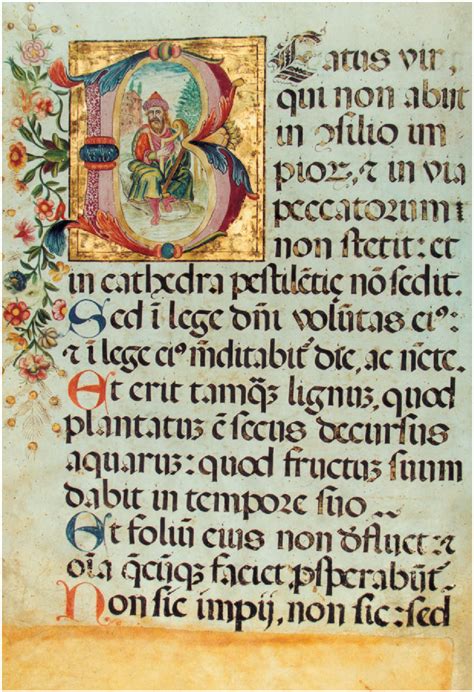 BEatus vir,
qui non abijt
in ꝯsilio im
pioꝝ, ⁊ in via
peccatorum
non stetit: et
in cathedra pestilētie nō sedit.
Sed ī lege dñi volūtas eiꝰ:
⁊ ī lege eiꝰ m̄ditabit᷑ die, ac ncte.
Et erit tamqꝫ lignuꝫ, quod
plantatuꝫ ē secus decursus
aquaruꝫ: quod fructuꝫ suum
dabit in tempore suo
Et foliū eius non đfluet: ⁊
oīa q̄cūqꝫ faciet ꝓsperabūt᷑.
Non sic impij, non sic: sed